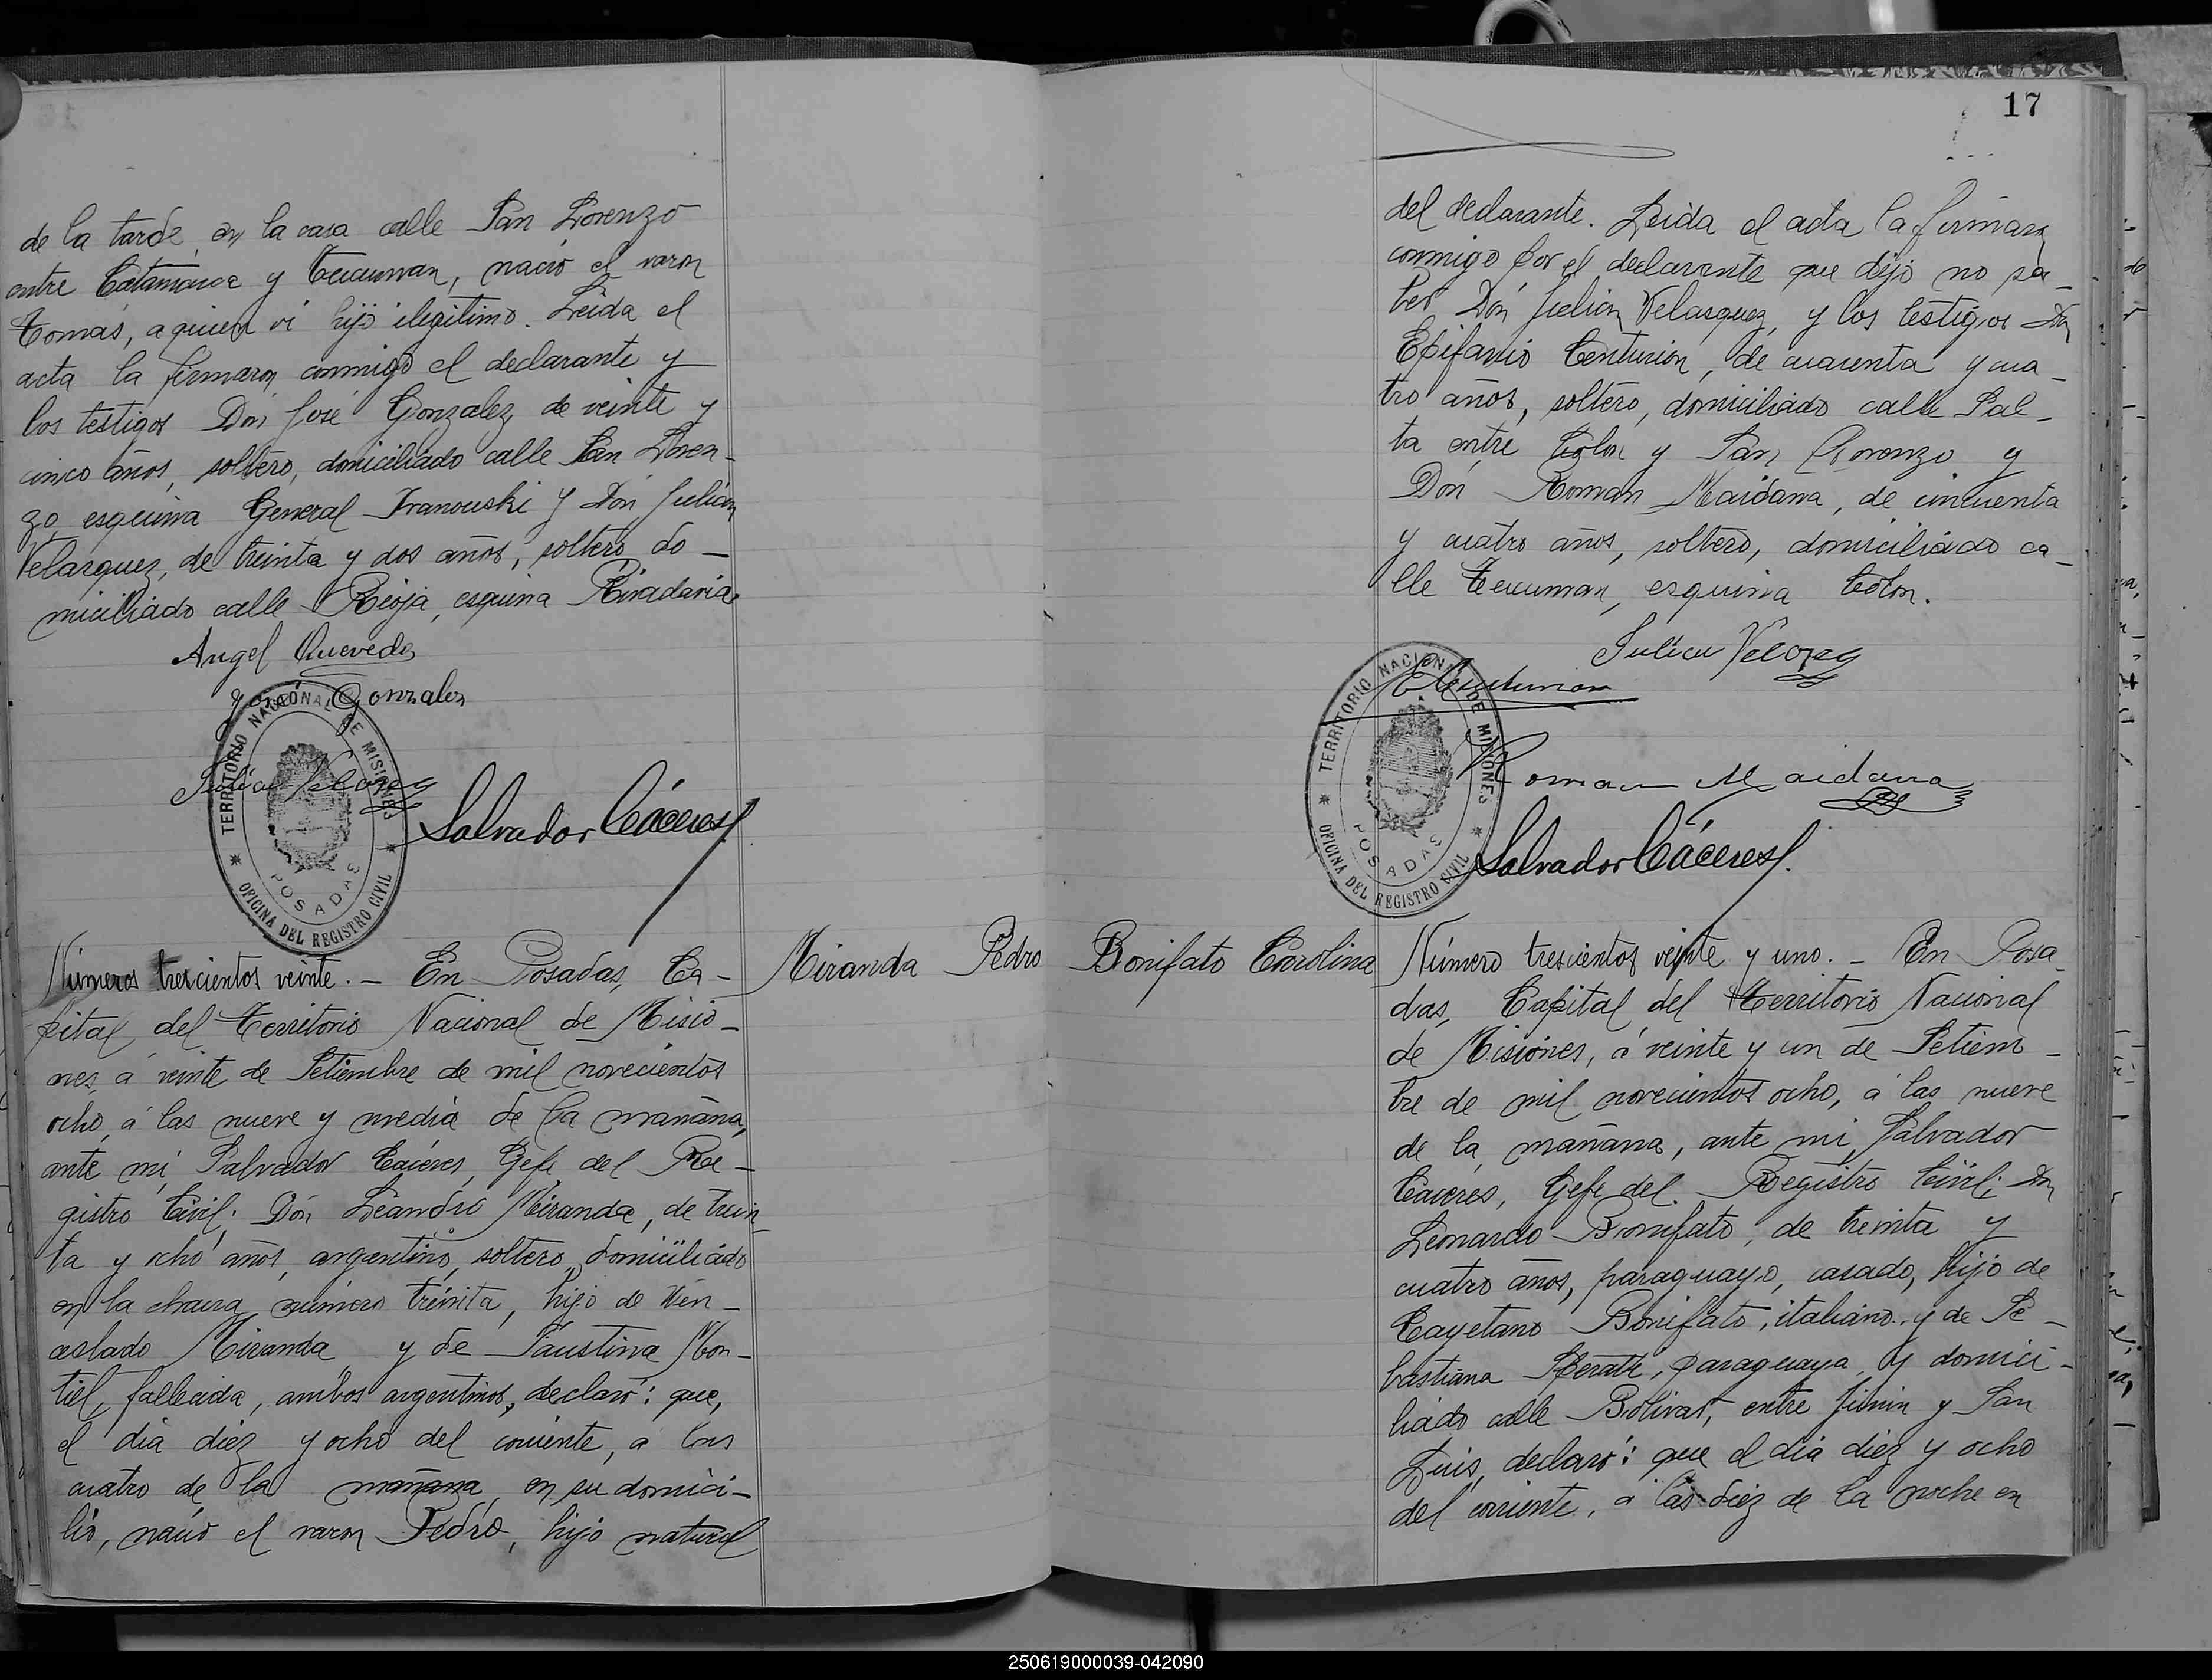 de la tarde, en la casa calle San Lorenzo
entre Catamarca y Tucuman, nació el varon
Tomás, a quien vi hijo ilegitimo. Leida el
acta la firmaron conmigo el declarante y
los testigos Don José Gonzalez, de veinte y
cinco años, soltero, domiciliado calle San Loren-
zo, esquina General Ivanouski y Don Julian
Velasquez, de treinta y dos años, soltero do-
miciliado calle Rioja, esquina Rivadavia.
Angel Quevedo
José Gonzales
TERRITORIO NACIONAL DE MISIONES
POSADAS
OFICINA DEL REGISTRO CIVIL
Salvador Cáceres
Número trescientos veinte. - En Posadas, Ca-
pital del Territorio Nacional de Misio-
nes, á veinte de Setiembre de mil novecientos
ocho, á las nueve y media de la mañana,
ante mi, Salvador Cáceres, Gefe del Re-
gistro Civil; Don Leandro Miranda, de trein-
ta y ocho años, argentino, soltero, domiciliado
en la chacra número treinta, hijo de Wen-
ceslado Miranda y de Faustina Mon-
tiel, fallecida, ambos argentinos, declaró: que,
el dia diez y ocho del corriente, á las
cuatro de la mañana, en su domici-
lio, nació el varon Pedro, hijo natural
Miranda Pedro
17
del declarante. Leida el acta la firman
conmigo por el declarante que dijo no sa-
ber Don Julian Velasquez, y los testigos Dn
Epifanio Centurion, de cuarenta y cua-
tro años, soltero, domiciliado calle Sal-
ta entre Colon y San Lorenzo y
Don Roman Maidana, de cincuenta
y cuatro años, soltero, domiciliado ca-
lle Tucuman, esquina Colon.
Julian
E Centurion
Roman Maidana
TERRITORIO NACIONAL DE MISIONES
POSADAS
OFICINA DEL REGISTRO CIVIL
Salvador Cáceres
Bonifato Carolina
Número trescientos veinte y uno. - En Posa-
das, Capital del Territorio Nacional
de Misiones, á veinte y un de Setiem-
bre de mil novecientos ocho, á las nueve
de la mañana, ante mi, Salvador
Cáceres, Gefe del Registro Civil; Dn
Leonardo Bonifato, de treinta y
cuatro años, paraguayo, casado, hijo de
Cayetano Bonifato, italiano y de Se-
bastiana, paraguaya y domici-
liado calle Bolivar, entre Junin y San
Luis, declaró: que el dia diez y ocho
del corriente, á las diez de la noche en
250619000039-042090